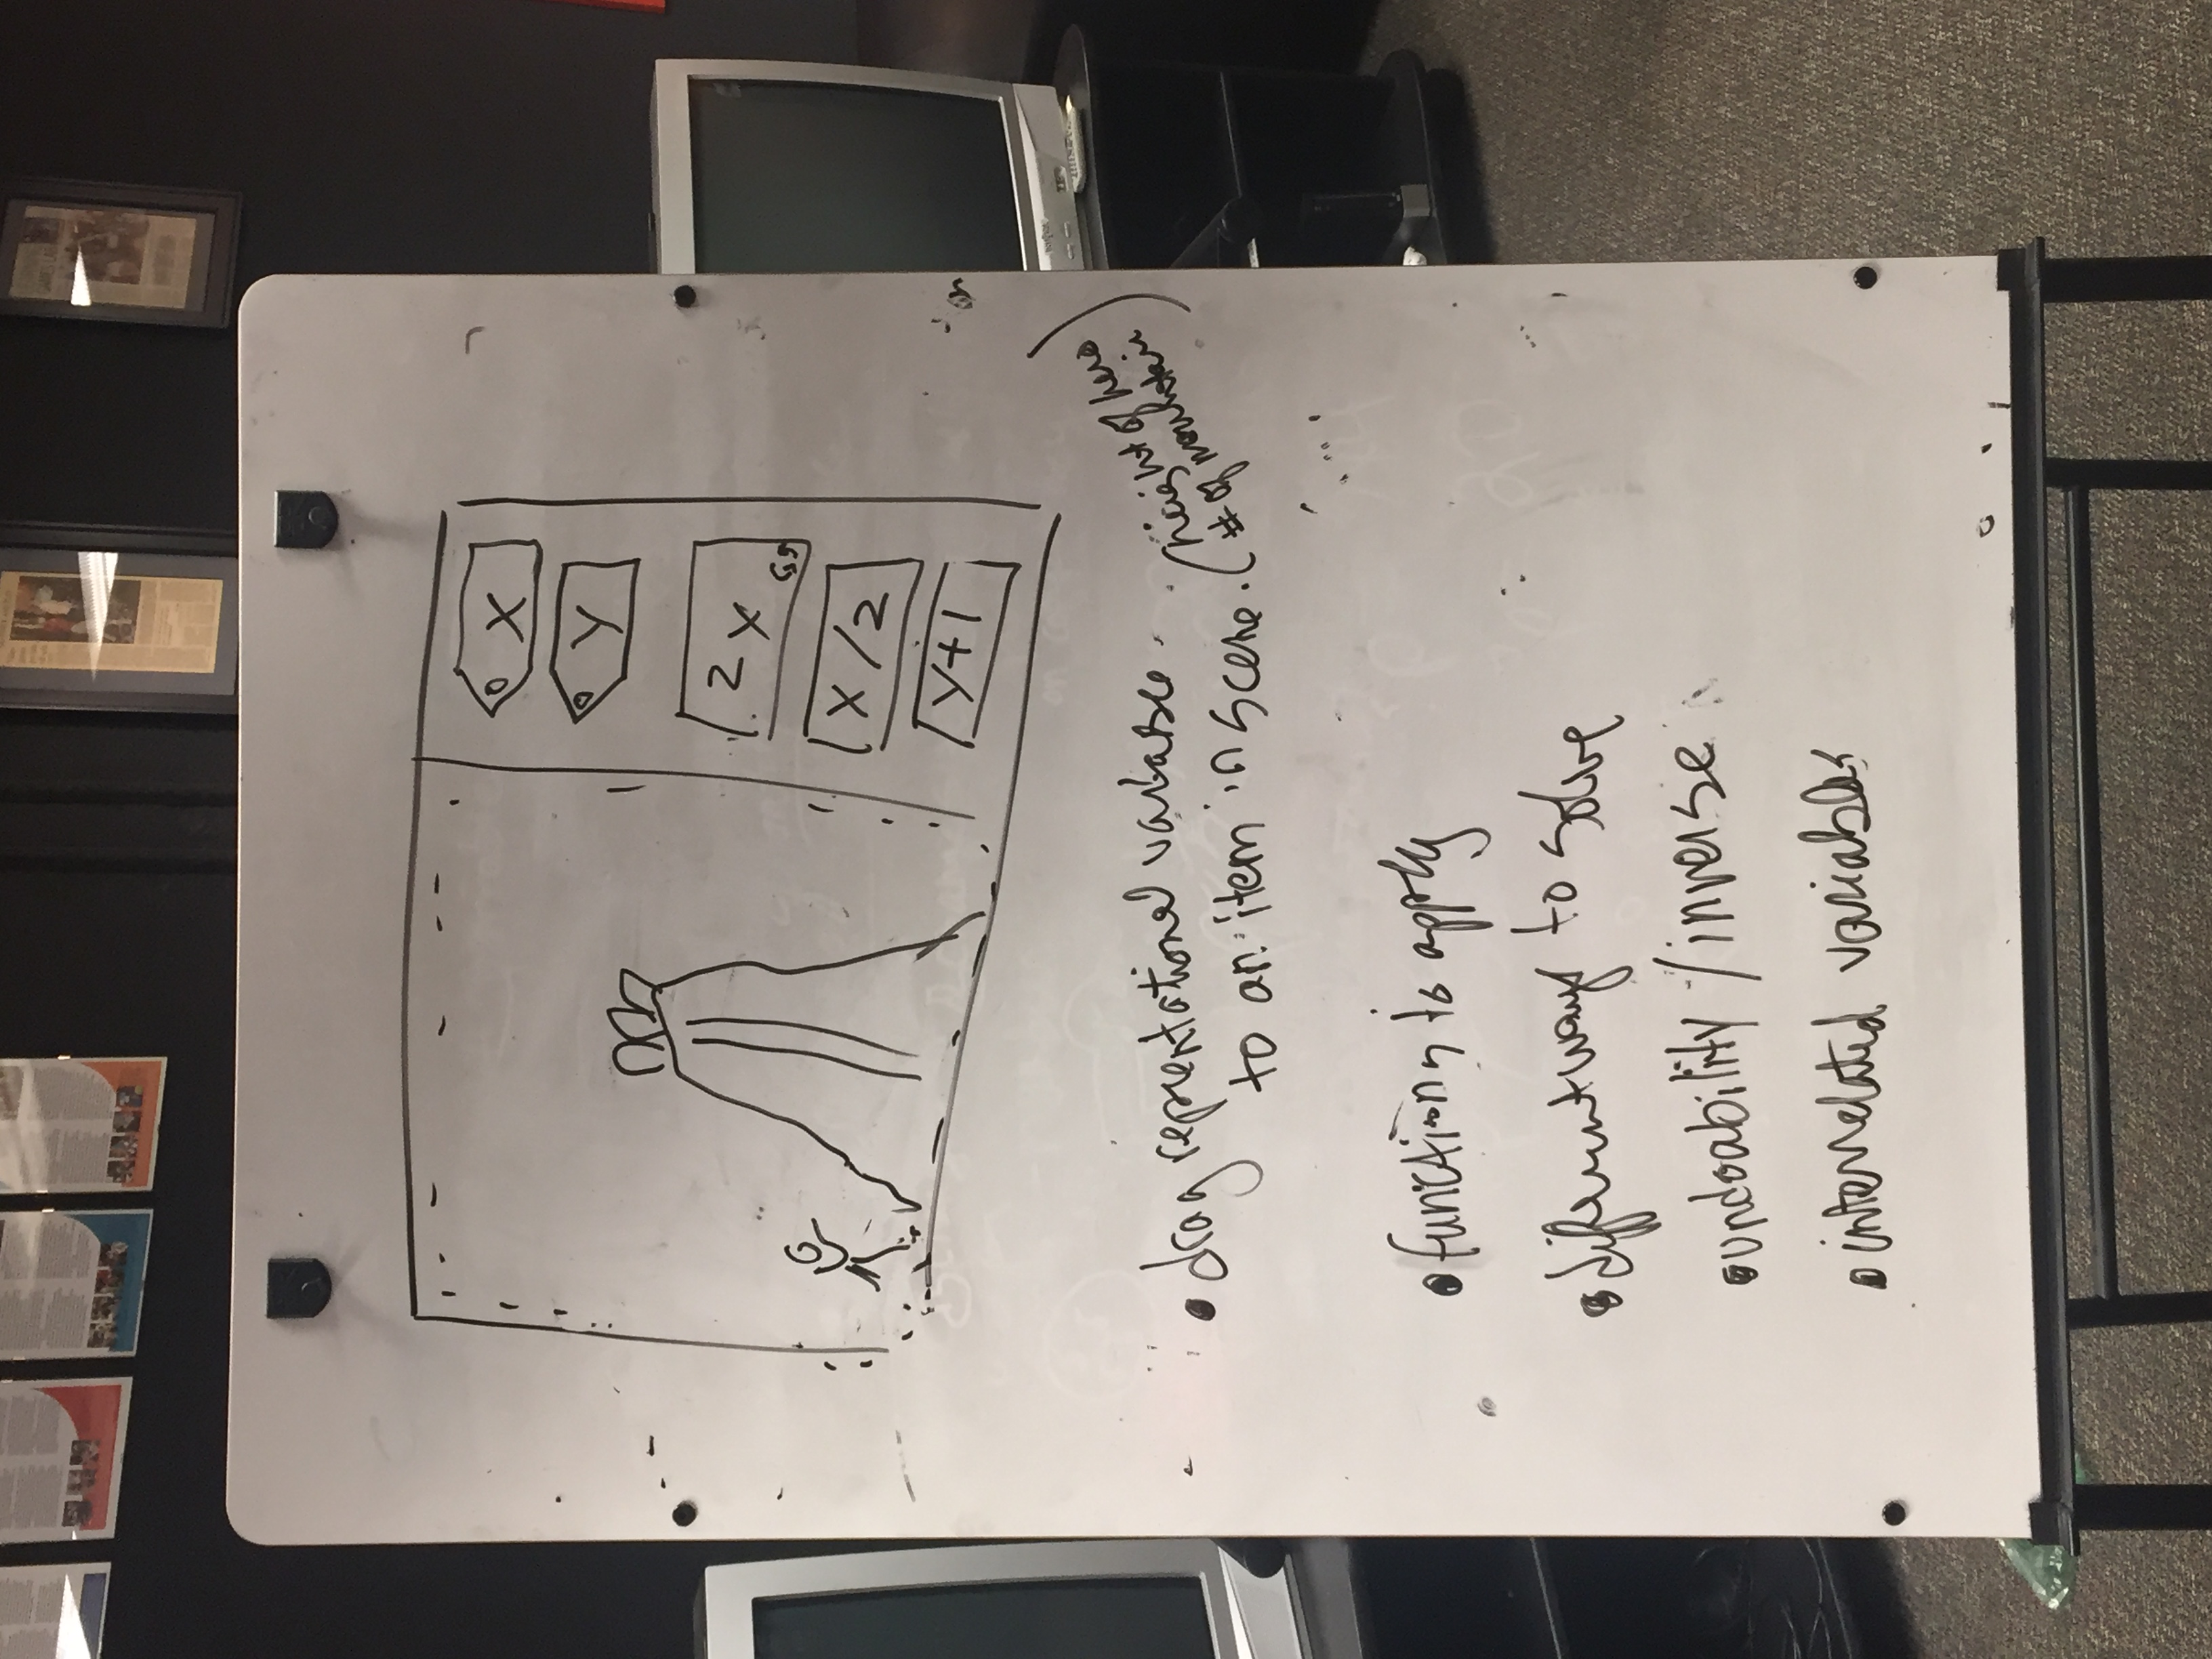 GAMES LAB
X
Y
2x
X/2
Y+1
• drag representational variable
to an item in scene. (height of hero
# of mountain)
• functions to apply
• different ways to solve
• undoability / inverse
• interrelated variables